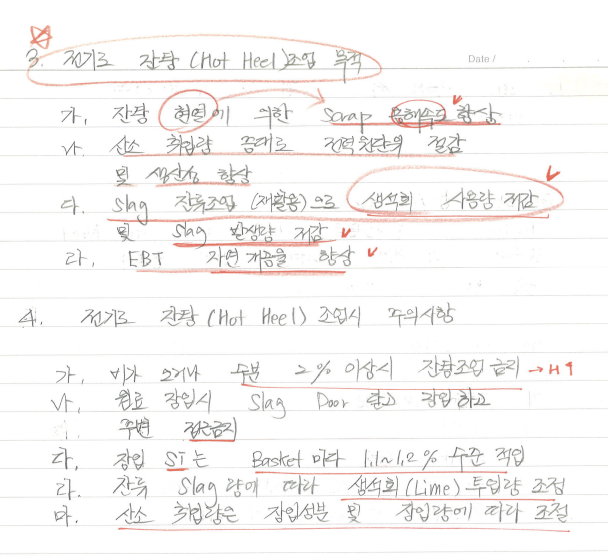 3. 전기로 잔탕 (Hot Heel)조업 목적
Date /
가, 잔탕 현열에 의한 Scrap 용해속도 향상
나, 산소 취입량 증대로 전력원단위 절감
및 생산성 향상
다. Slag 잔류조업 (재활용)으로 생석회 사용량 저감
및 Slag 발생량 저감
라, EBT 자연개공율 향상
4. 전기로 잔탕 (Hot Heel) 조업시 주의사항
가, 비가 오거나 수분 2% 이상시 잔탕조업 금지 → H↑
나, 원료 장입시 Slag Door 닫고 장입하고
주변 접근금지
다, 장입 ST는 Basket 마다 1.1~1.2% 수준 적입
라. 잔류 Slag 량에 따라 생석회(Lime) 투입량 조정
마. 산소 취입량은 장입성분 및 장입량에 따라 조절